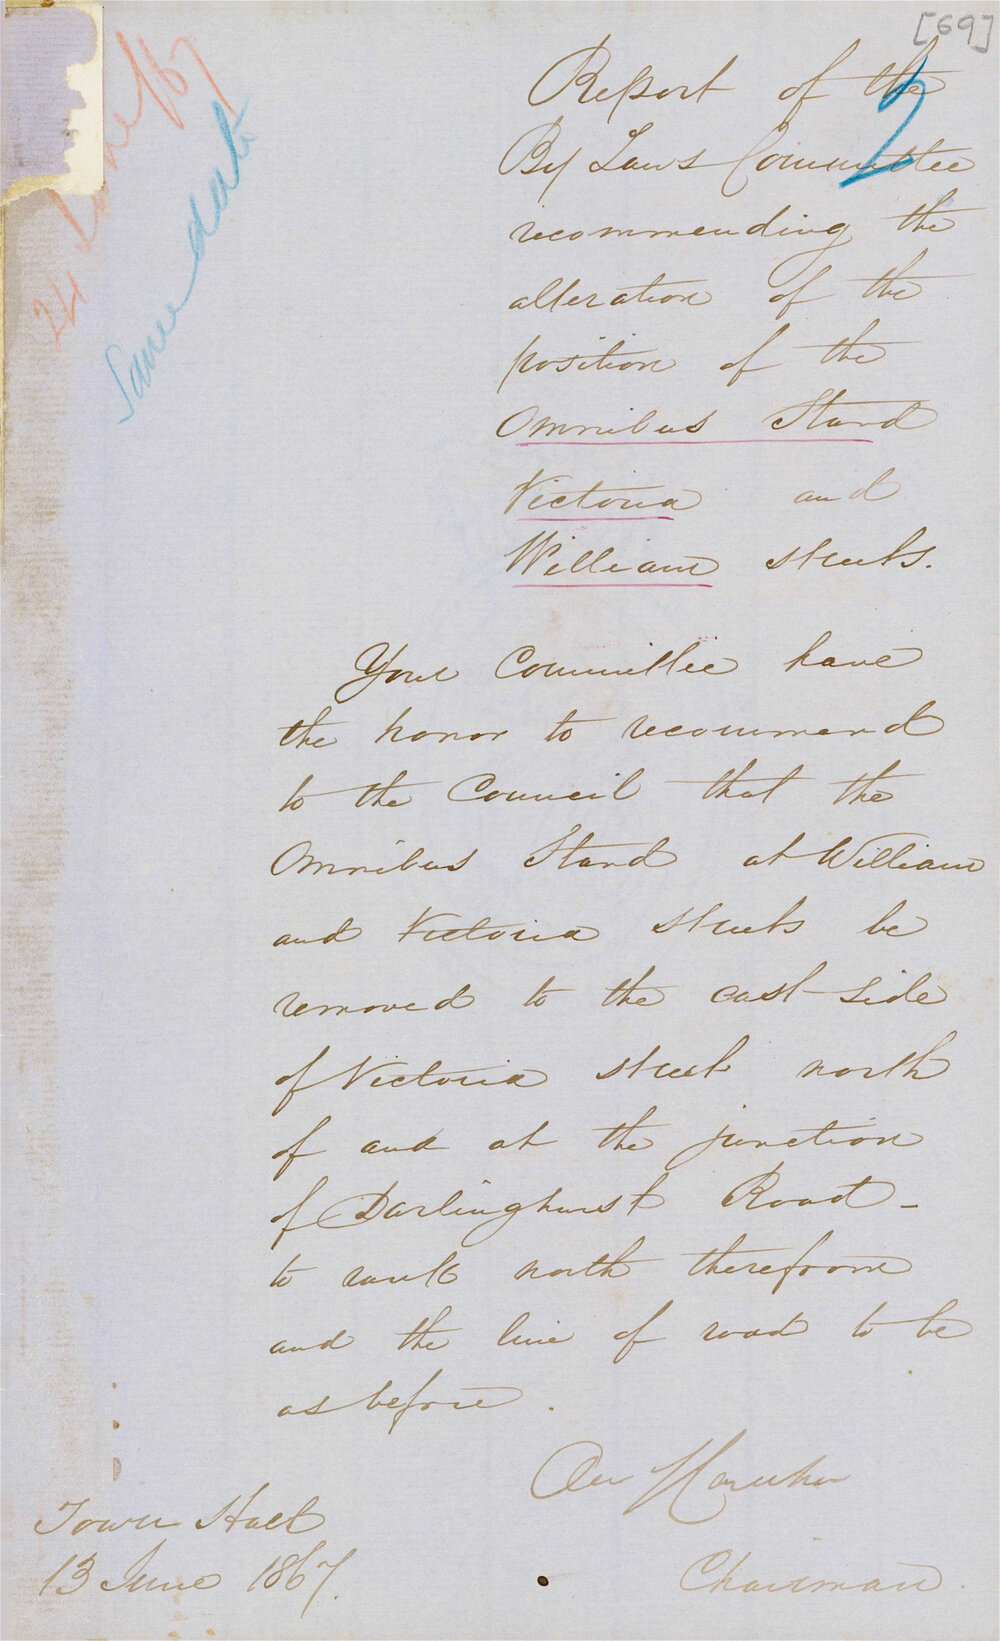 [69]
24 June/67
Same date
2
Report of the
By Laws Committee
recommending the
alteration of the
position of the
Omnibus Stand
Victoria and
William streets.
Your Committee have
the honor to recommend
to the Council that the
Omnibus Stand at William
and Victoria streets be
removed to the east side
of Victoria street north
of and at the junction
of Darlinghurst Road -
to rank north therefrom
and the line of road to be
as before.
Chairman.
Town Hall
13 June 1867.